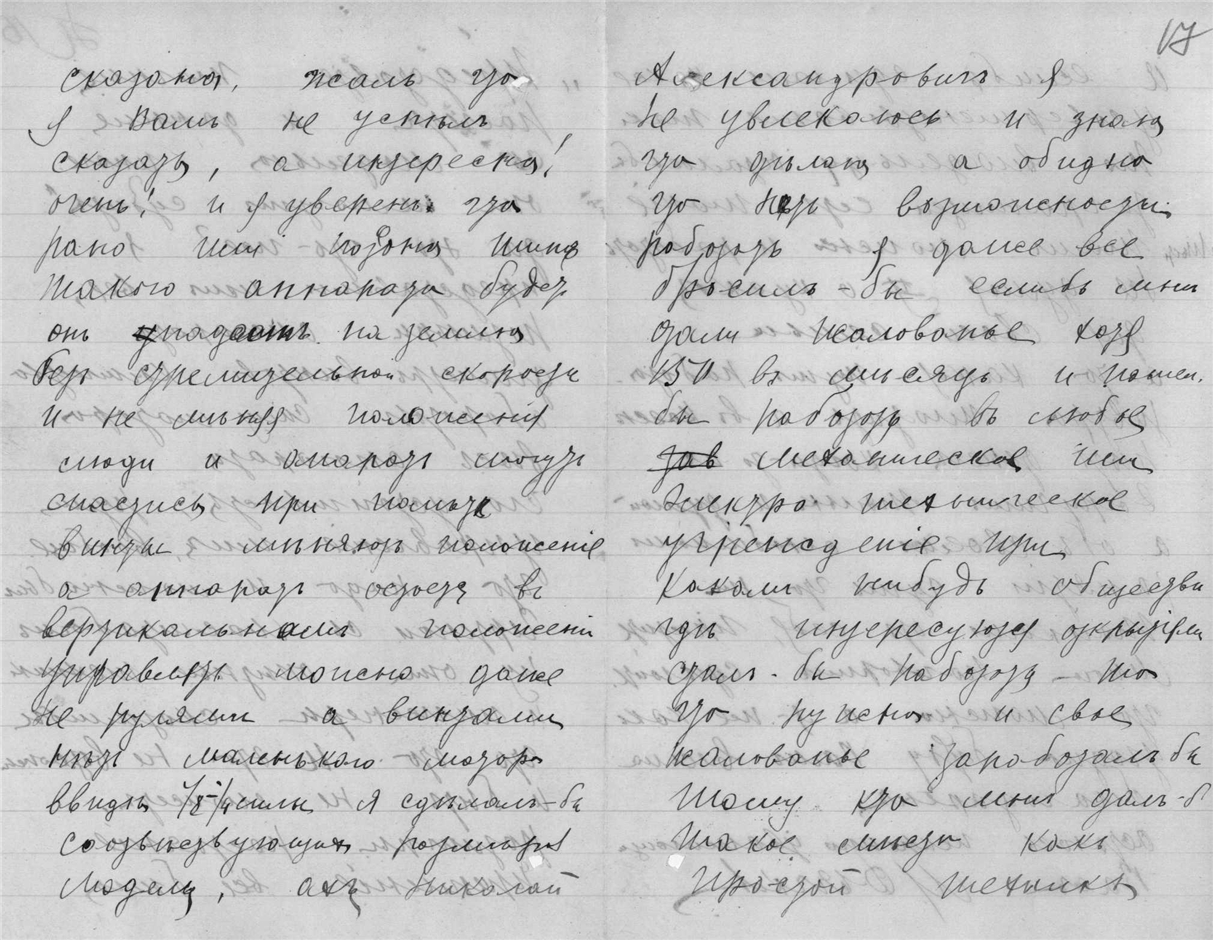 сказана, жаль что
я Вамъ не успѣлъ
сказать, а интересна!
очень! и я уверенъ что
рано или позона типъ
такого аппарата будетъ
онъ упадетъ на землю
безъ стрелительной скорости
и не мѣняя положенія
люди и апаратъ могутъ
спастись при помощи
винты мѣняютъ положеніе
а аппаратъ остоется въ
вертикальномъ положеніи
управлять можно даже
не рулями а винтами
нѣтъ маленького мотора
ввидѣ 1/8-1/4 силы я сдѣлалъ-бы
соотвѣтствующих размѣров
модель, ахъ Николай
17
Александровичъ я
не увлекаюсь и знаю
что дѣлаю а обидно
что нетъ возможности
работать я даже все
бросилъ-бы еслибъ мнѣ
дали жалованье хотя
150 въ мѣсяцъ и пошел
бы работать въ любое
механическое или
Электро техническое
учрежденіе при
какомъ нибудь обществѣ
гдѣ интересуются открытіями
сталъ-бы работать то
что нужно и свое
жалованье заработалъ бы
тому кто мнѣ далъ-б
такое мѣсто какъ
простой техникъ